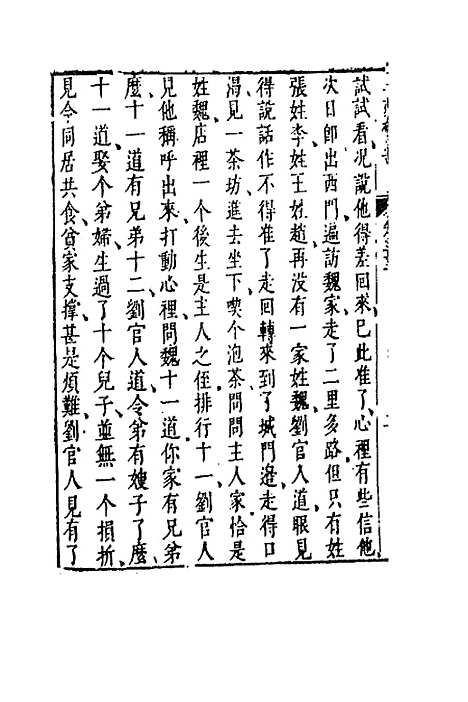 試試看况說他得差回來已此准了心裡有些信他
次日卽出西門遍訪魏家走了二里多路但只有姓
張姓李姓王姓趙再没有一家姓魏劉官人道眼見
得說話作不得准了走回轉來到了城門邊走得口
渴見一茶坊進去坐下喫个泡茶問問主人家恰是
姓魏店裡一个後生是主人之侄排行十一劉官人
見他稱呼出來打動心裡問魏十一道你家有兄弟
麽十一道有兄弟十二劉官人道令弟有嫂子了麽
十一道娶个弟婦生過了十个兒子並無一个損折
見今同居共食貧家支撑甚是煩難劉官人見有了